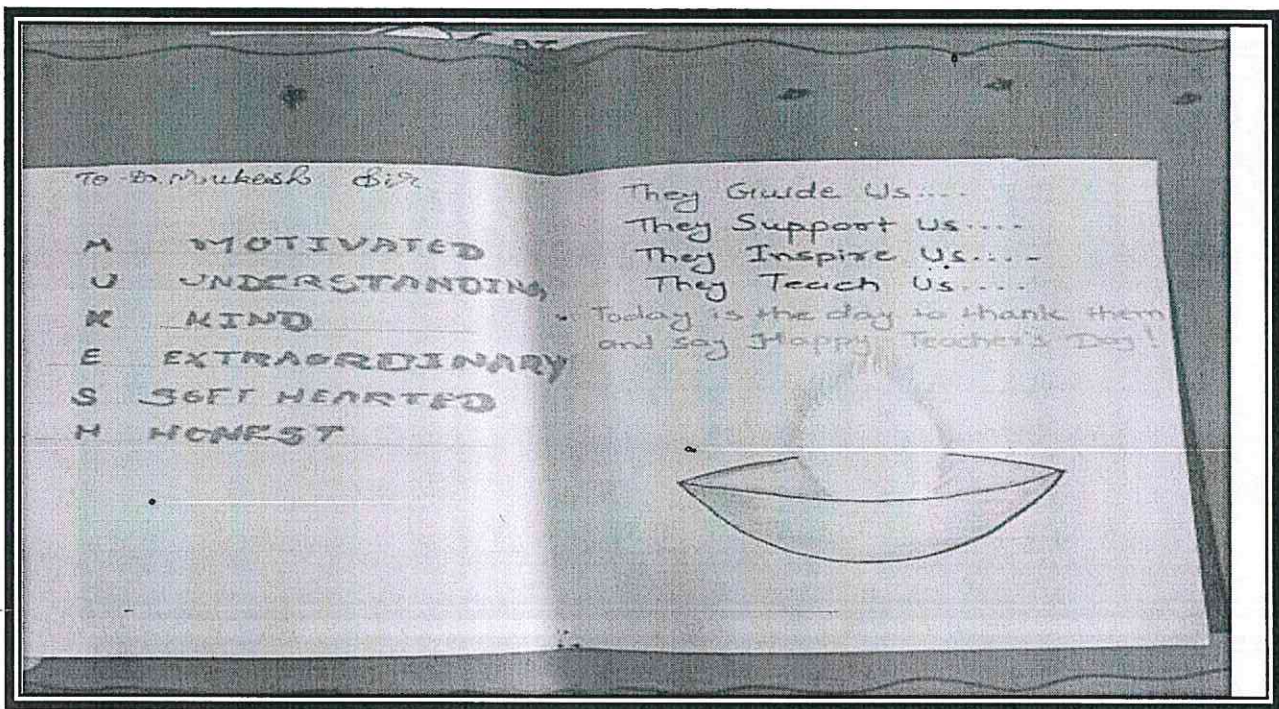 To Dr. Mukesh Sir
M MOTIVATED
U UNDERSTANDING
K KIND
E EXTRAORDINARY
S SOFT HEARTED
H HONEST
They Guide Us....
They Support Us....
They Inspire Us....
They Teach Us....
Today is the day to thank them
and say Happy Teacher's Day!